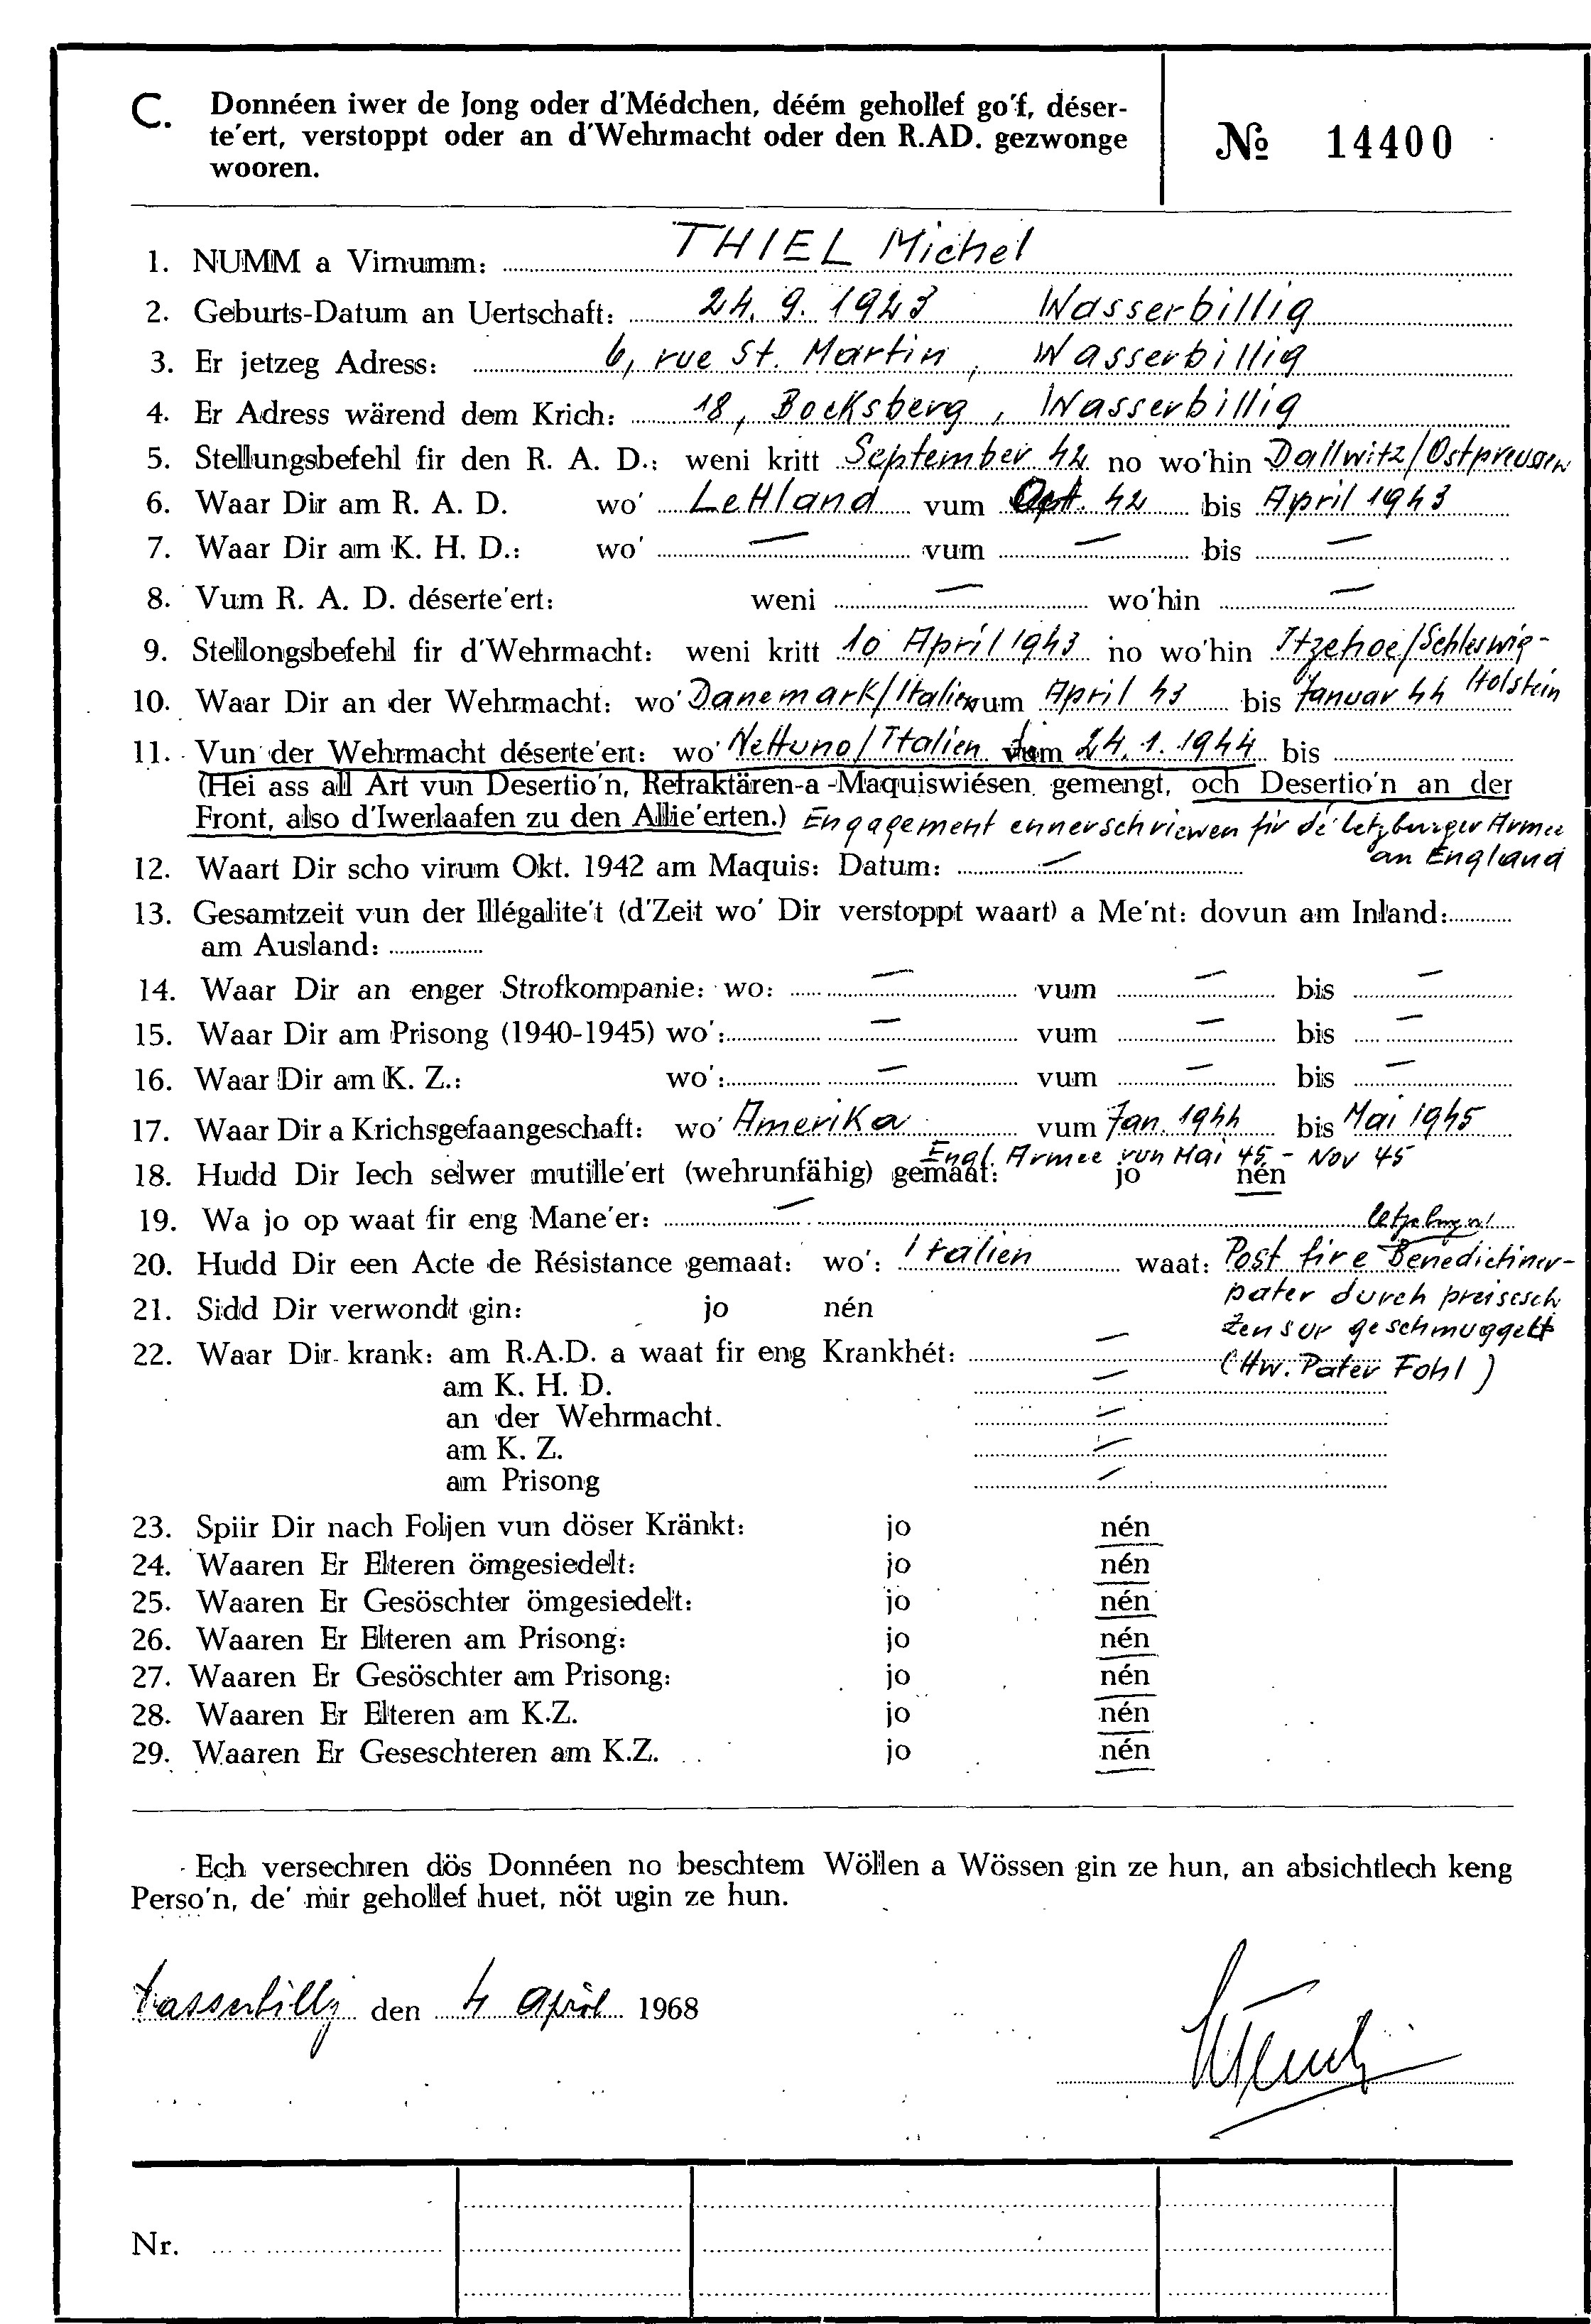 C. Donnéen iwer de Jong oder d'Médchen, déém gehollef go'f, déser-
te'ert, verstoppt oder an d'Wehrmacht oder den R.AD. gezwonge
wooren.
№ 14400
1. NUMM a Virnumm: THIEL Michel
2. Geburts-Datum an Uertschaft: 24. 9. 1923 Wasserbillig
3. Er jetzeg Adress: 6, rue St. Martin, Wasserbillig
4. Er Adress wärend dem Krich: 18, Bocksberg, Wasserbillig
5. Stellungsbefehl fir den R. A. D.: weni kritt September 42 no wo'hin Dallwitz/Ostpreussen
6. Waar Dir am R. A. D. wo' Lettland vum Oct. 42 bis April 1943
7. Waar Dir am K. H. D.: wo' — vum — bis —
8. Vum R. A. D. déserte'ert: weni — wo'hin —
9. Stellongsbefehl fir d'Wehrmacht: weni kritt 10 April 1943 no wo'hin Itzehoe/Schleswig-
Holstein
10. Waar Dir an der Wehrmacht: wo' Danemark/Italien vum April 43 bis Januar 44
11. Vun der Wehrmacht déserte'ert: wo' Nettuno/Italien vum 24. 1. 1944 bis
(Hei ass all Art vun Desertio'n, Refraktären-a-Maquiswiésen gemengt, och Desertio'n an der
Front, also d'Iwerlaafen zu den Allie'erten.) Engagement ennerschriewen fir de' letzburger Armee
an England
12. Waart Dir scho virum Okt. 1942 am Maquis: Datum: —
13. Gesamtzeit vun der Illégalite't (d'Zeit wo' Dir verstoppt waart) a Me'nt: dovun am Inland:
am Ausland:
14. Waar Dir an enger Strofkompanie: wo: — vum — bis —
15. Waar Dir am Prisong (1940-1945) wo': — vum — bis —
16. Waar Dir am K. Z.: wo': — vum — bis —
17. Waar Dir a Krichsgefaangeschaft: wo' Amerika vum Jan. 1944 bis Mai 1945
Engl. Armee vun Mai 45 - Nov 45
18. Hudd Dir Iech selwer mutille'ert (wehrunfähig) gemaat: jo nén
19. Wa jo op waat fir eng Mane'er: —
20. Hudd Dir een Acte de Résistance gemaat: wo': Italien waat: Post fir e Benedictiner-
pater durch preisesch
21. Sidd Dir verwondt gin: jo nén
Zensur geschmuggelt
22. Waar Dir krank: am R.A.D. a waat fir eng Krankhét: —
(Hw. Pater Fohl)
am K. H. D. —
an der Wehrmacht. —
am K. Z. —
am Prisong —
23. Spiir Dir nach Foljen vun döser Kränkt: jo nén
24. Waaren Er Elteren ömgesiedelt: jo nén
25. Waaren Er Gesöschter ömgesiedelt: jo nén
26. Waaren Er Elteren am Prisong: jo nén
27. Waaren Er Gesöschter am Prisong: jo nén
28. Waaren Er Elteren am K.Z. jo nén
29. Waaren Er Geseschteren am K.Z. jo nén
Ech versechren dös Donnéen no beschtem Wöllen a Wössen gin ze hun, an absichtlech keng
Perso'n, de' mir gehollef huet, nöt ugin ze hun.
Wasserbillig den 4 April 1968
Nr.